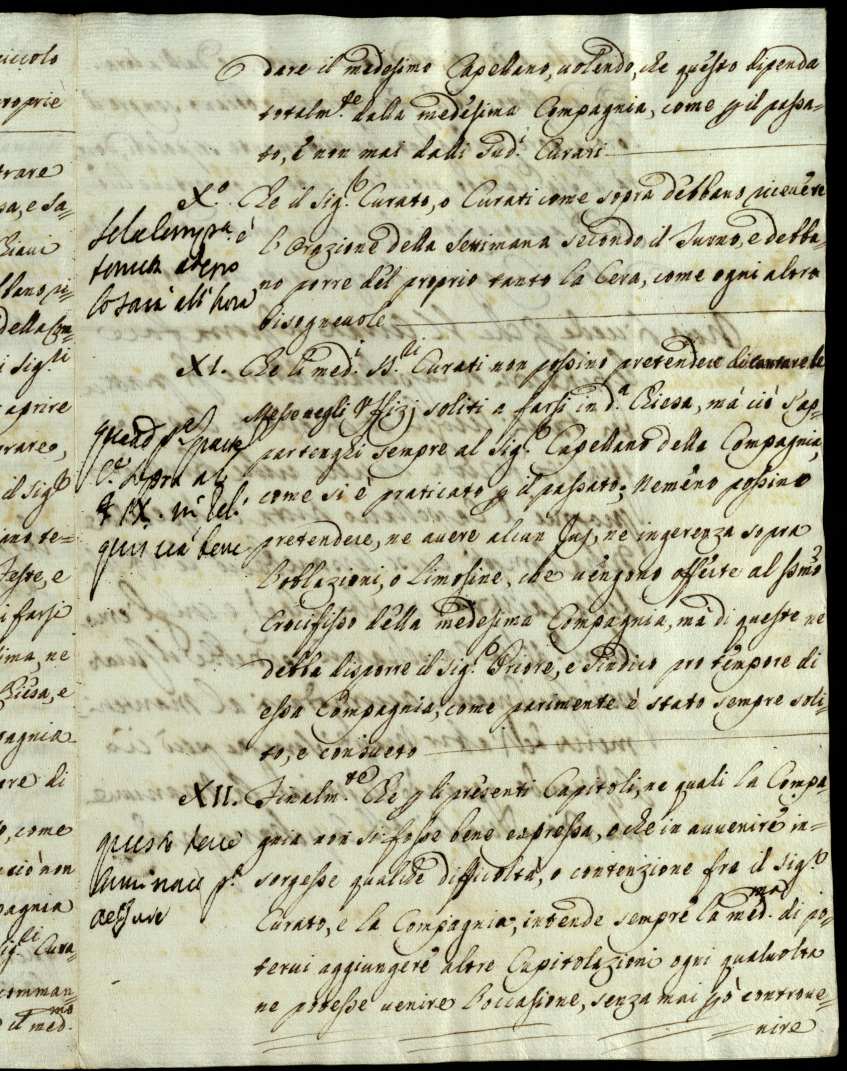 dare il medesimo Capellano, volendo, che questo dipenda
totalm.te dalla medesima Compagnia, come p il passa-
to, e non mai dalli Sud.i Curati
X.o Che il Sig.o Curato, o Curati come sopra debbano ricevere
l'Orazione della Settimana secondo il Turno, e debba-
no porre del proprio tanto la Cera, come ogni altro
bisognevole
se la Comp.a è
tenuta
lo sarà all'hora
XI. Che li med.i SS.ri Curati non possino pretendere di cantare le
Messe negli Uffizj soliti a farsi in d.a Chiesa, mà ciò s'ap-
partenghi sempre al Sig.o Capellano della Compagnia,
come si è praticato p il passato; Nemeno possino
pretendere, ne avere alcun Jus, ne ingerenza sopra
l'oblazioni, o limosine, che vengono offerte al SSmo
Crocifisso della medesima Compagnia, mà di queste ne
debba disporre il Sig.o Priore, e Sindico pro tempore di
essa Compagnia, come parimente è stato sempre soli-
to, e consueto
sopra al
§ IX.
XII. Finalm.te Che p li presenti Capitoli, ne quali la Compa-
gnia non si fosse bene espressa, o che in avvenire in-
sorgesse qualche difficoltà, o contenzione fra il Sig.o
Curato, e la Compagnia, intende sempre la med.ma di po-
tervi aggiungere altre Capitolazioni ogni qualvolta
ne potesse venire l'occasione, senza mai p ciò controve-
nire
questo deve
de Jure
iccolo
roprie
trare
sa, e Sa-
Chiavi
della Com-
i Sig.ri
aprire
il Sig.o
Feste, e
i farsi
ima, ne
Chiesa, e
pagnia
ore di
o, come
ciò non
pagnia
Sig.ri Cura-
comman-
il med.mo